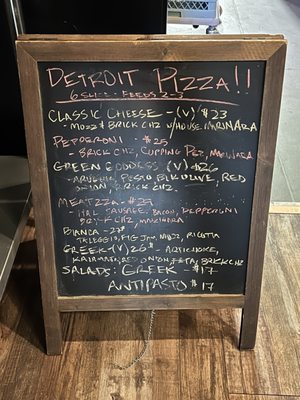 DETROIT PIZZA!!
6 SLICE - FEEDS 2-3
CLASSIC CHEESE - (V) $23
- MOZZ & BRICK CHZ W/ HOUSE MARINARA
PEPPERONI - $25
- BRICK CHZ, CUPPING PEP, MARINARA
GREEN GODDESS (V) $26
- ARUGULA, PESTO, OLIVE, RED
ONION, BRICK CHZ.
MEATZZA - $29
- ITAL SAUSAGE, BACON, PEPPERONI
BRICK CHZ, MARINARA
BIANCA - 27$
TALEGGIO, FIG JAM, MOZZ, RICOTTA
GREEK - (V) 26$ - ARTICHOKE,
KALAMATA, RED ONION, FETA, BRICK CHZ
SALADS: GREEK - $17
ANTIPASTO $17